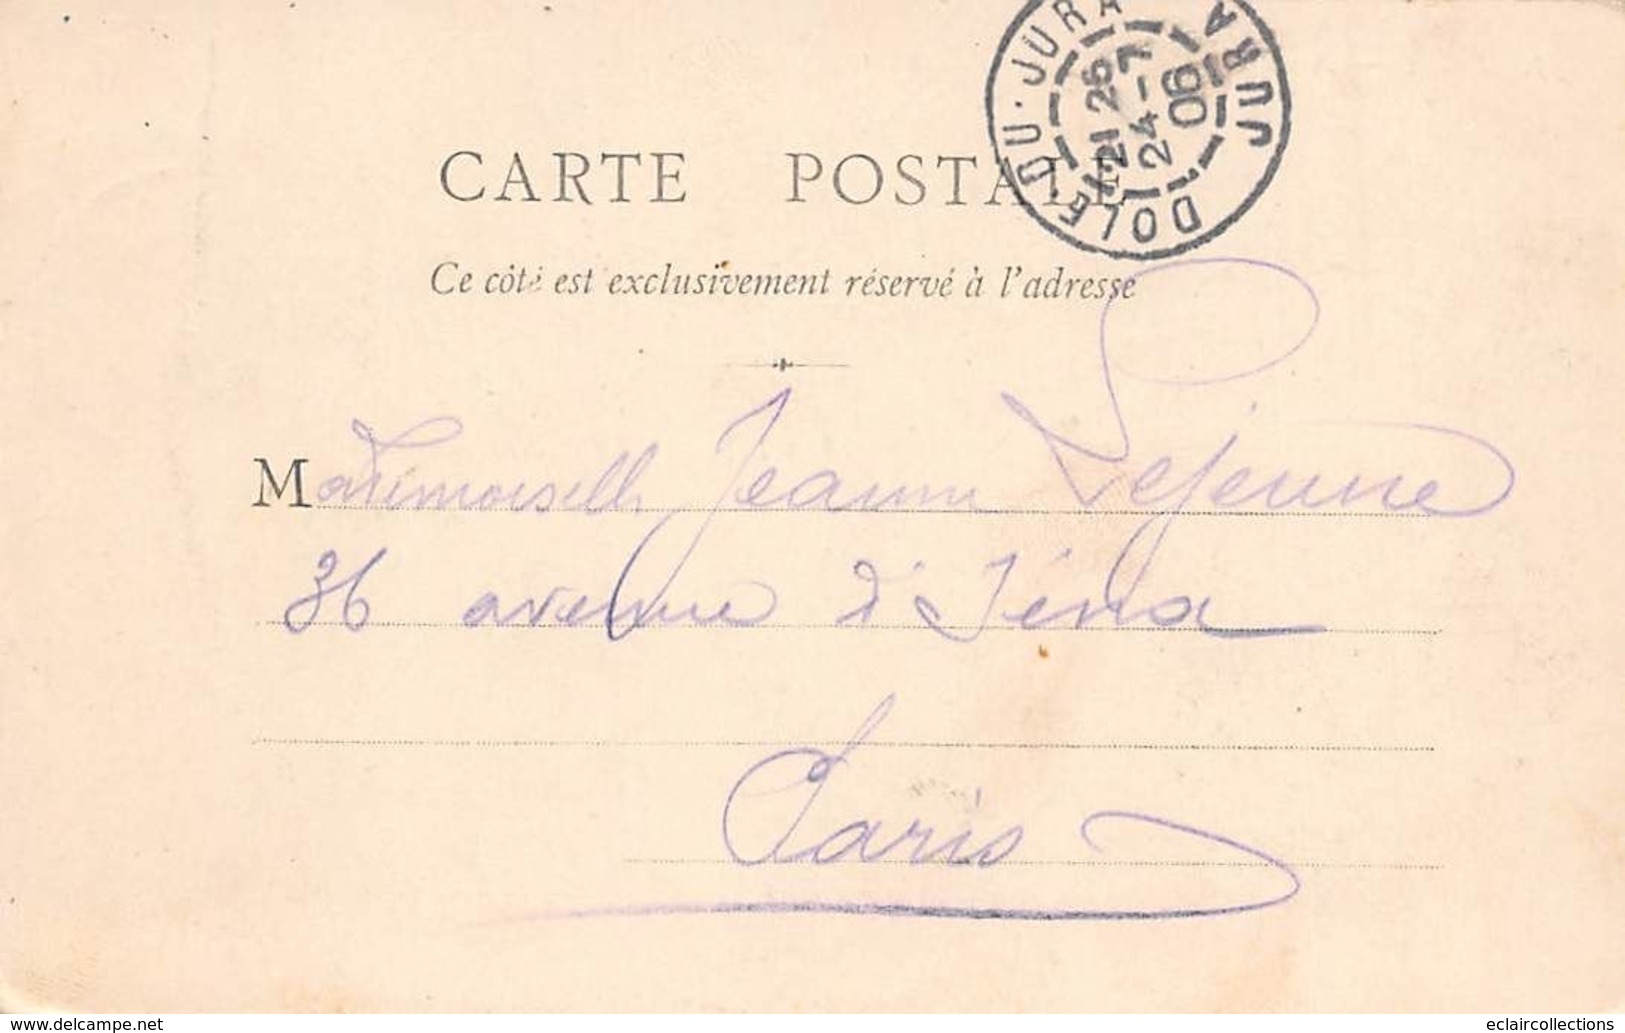 DOLE-DU-JURA
JURA
21 25
24-7
06
CARTE POSTALE
Ce côté est exclusivement réservé à l'adresse
Mademoiselle Jeanne Lejeune
36 avenue d'Iéna
Paris
www.delcampe.net
eclaircollections